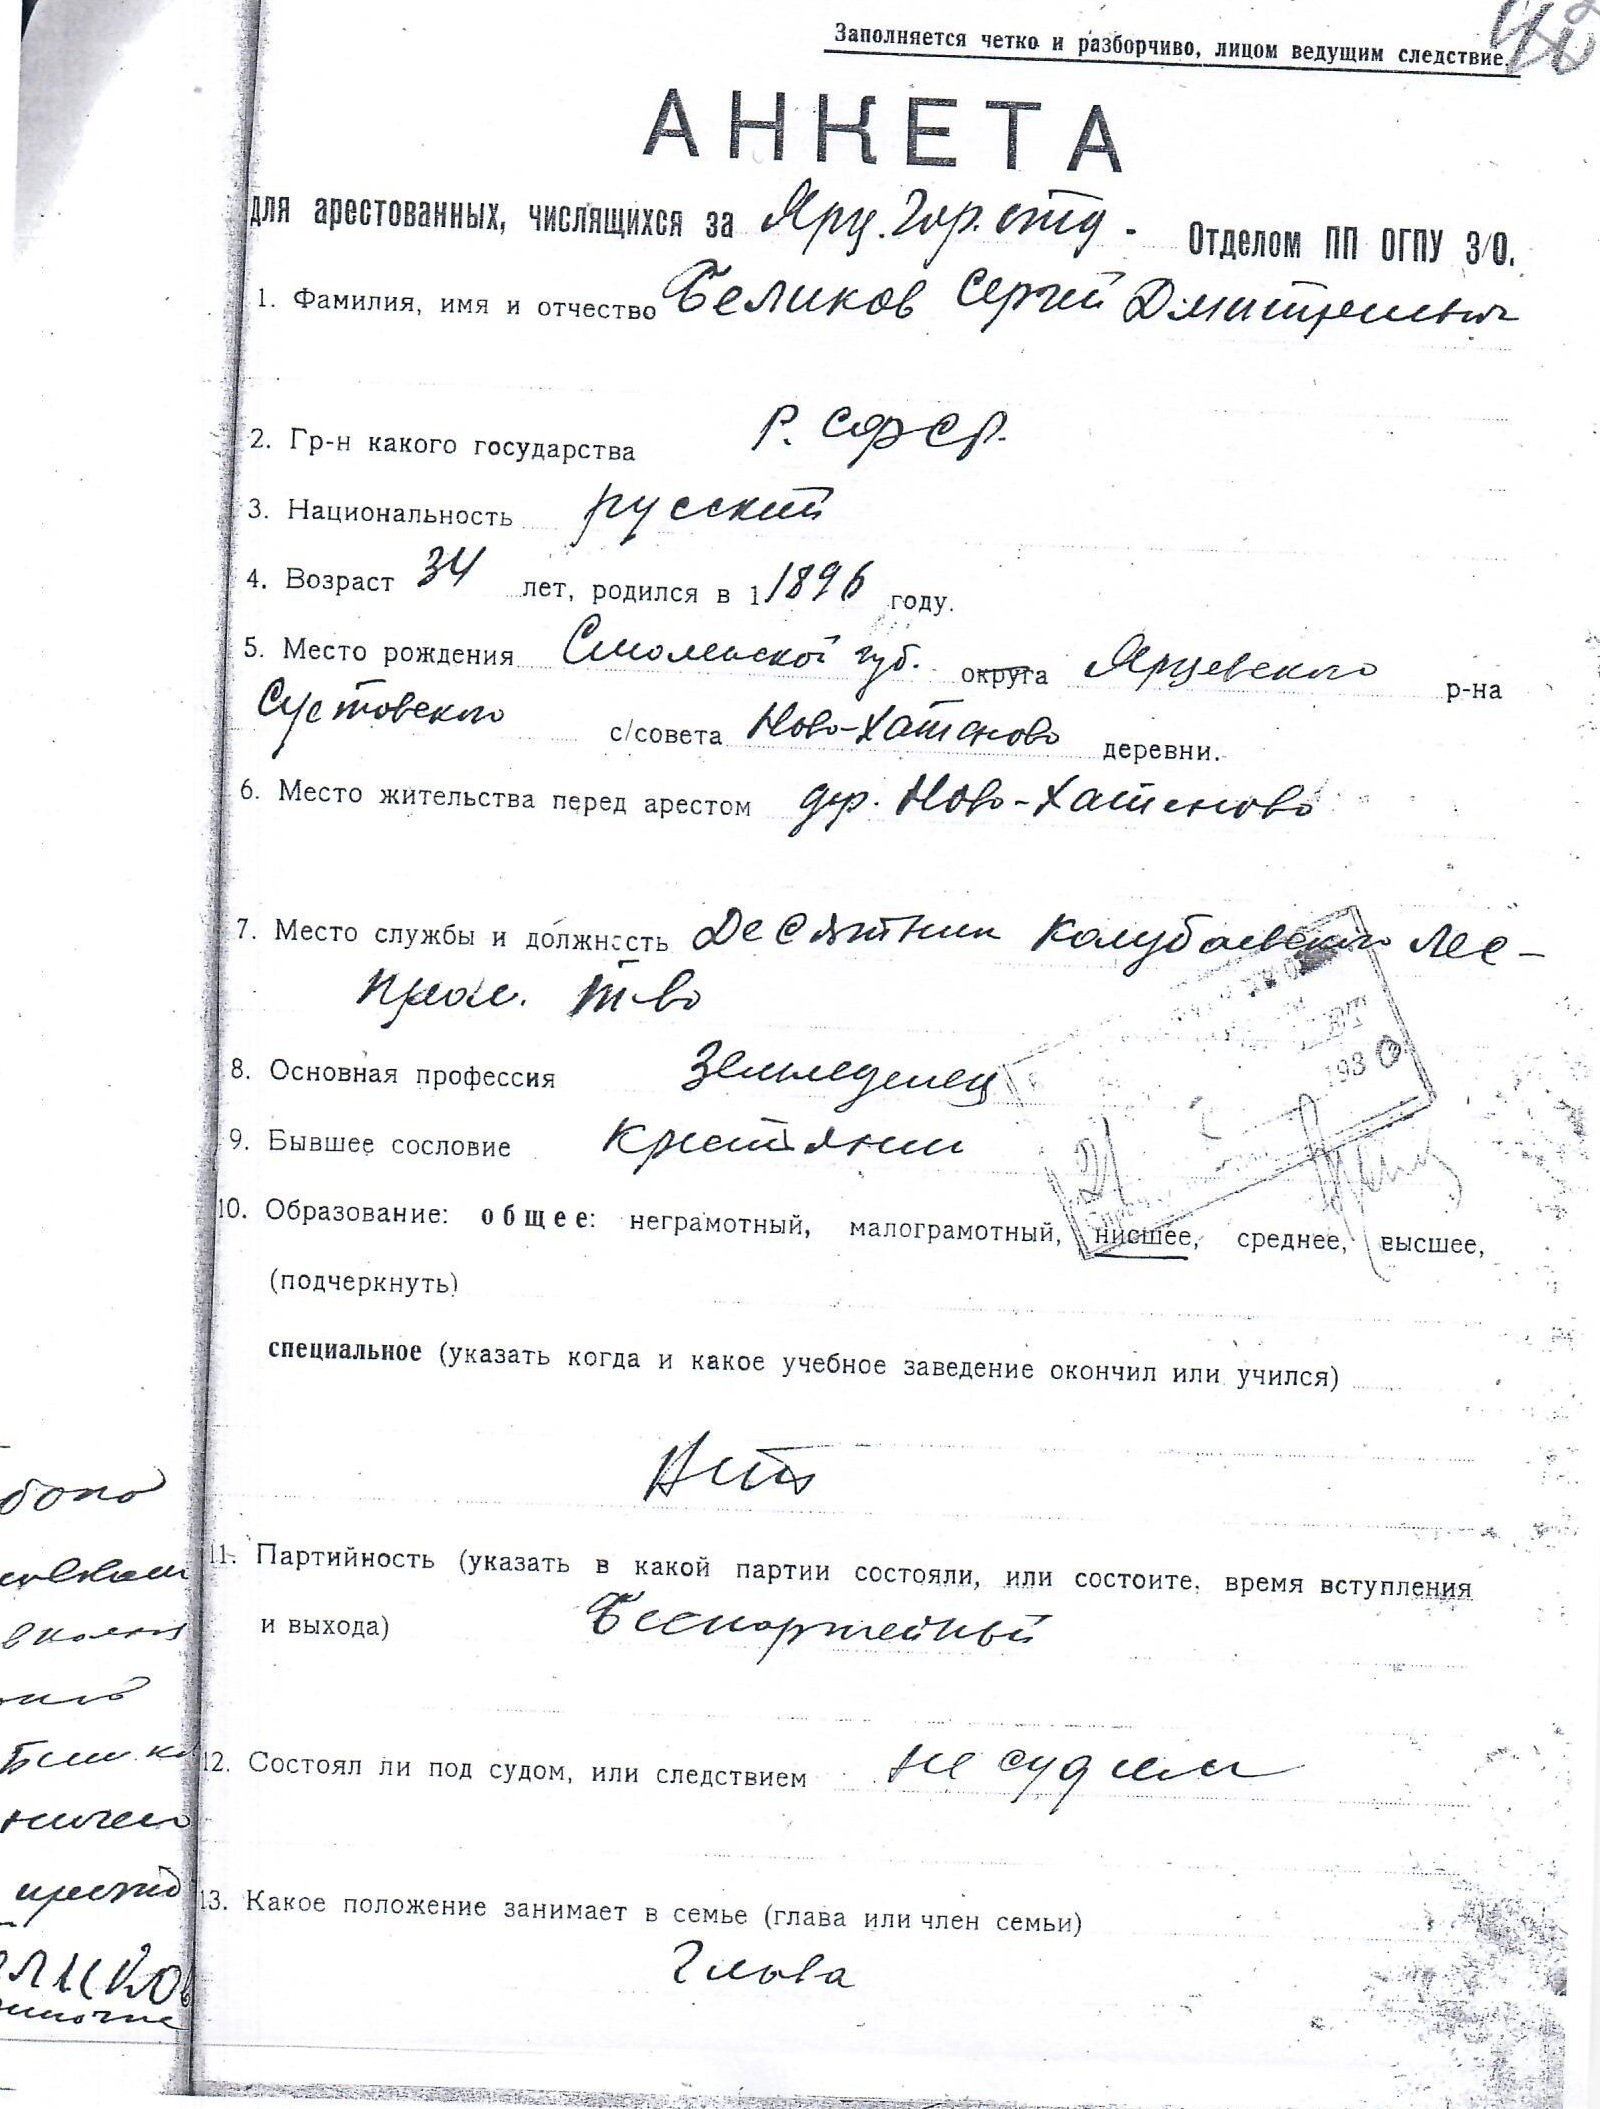 Заполняется четко и разборчиво, лицом ведущим следствие.
АНКЕТА
для арестованных, числящихся за Ярц. Гор. отд. Отделом ПП ОГПУ З/О.
1. Фамилия, имя и отчество Беликов Сергей Дмитриевич
2. Гр-н какого государства Р.СФСР.
3. Национальность русский
4. Возраст 34 лет, родился в 1 1896 году.
5. Место рождения Смоленской губ. округа Ярцевского р-на
Сустовского с/совета Ново-Хатеново деревни.
6. Место жительства перед арестом дер. Ново-Хатеново
7. Место службы и должность Десятник Колубаевского лес-
пром. т-во
8. Основная профессия Земледелец
9. Бывшее сословие Крестянин
193
21
10. Образование: общее: неграмотный, малограмотный, нисшее, среднее, высшее,
(подчеркнуть)
специальное (указать когда и какое учебное заведение окончил или учился)
Нет
11. Партийность (указать в какой партии состояли, или состоите. время вступления
и выхода) Беспартейный
12. Состоял ли под судом, или следствием не судим
13. Какое положение занимает в семье (глава или член семьи)
Глова